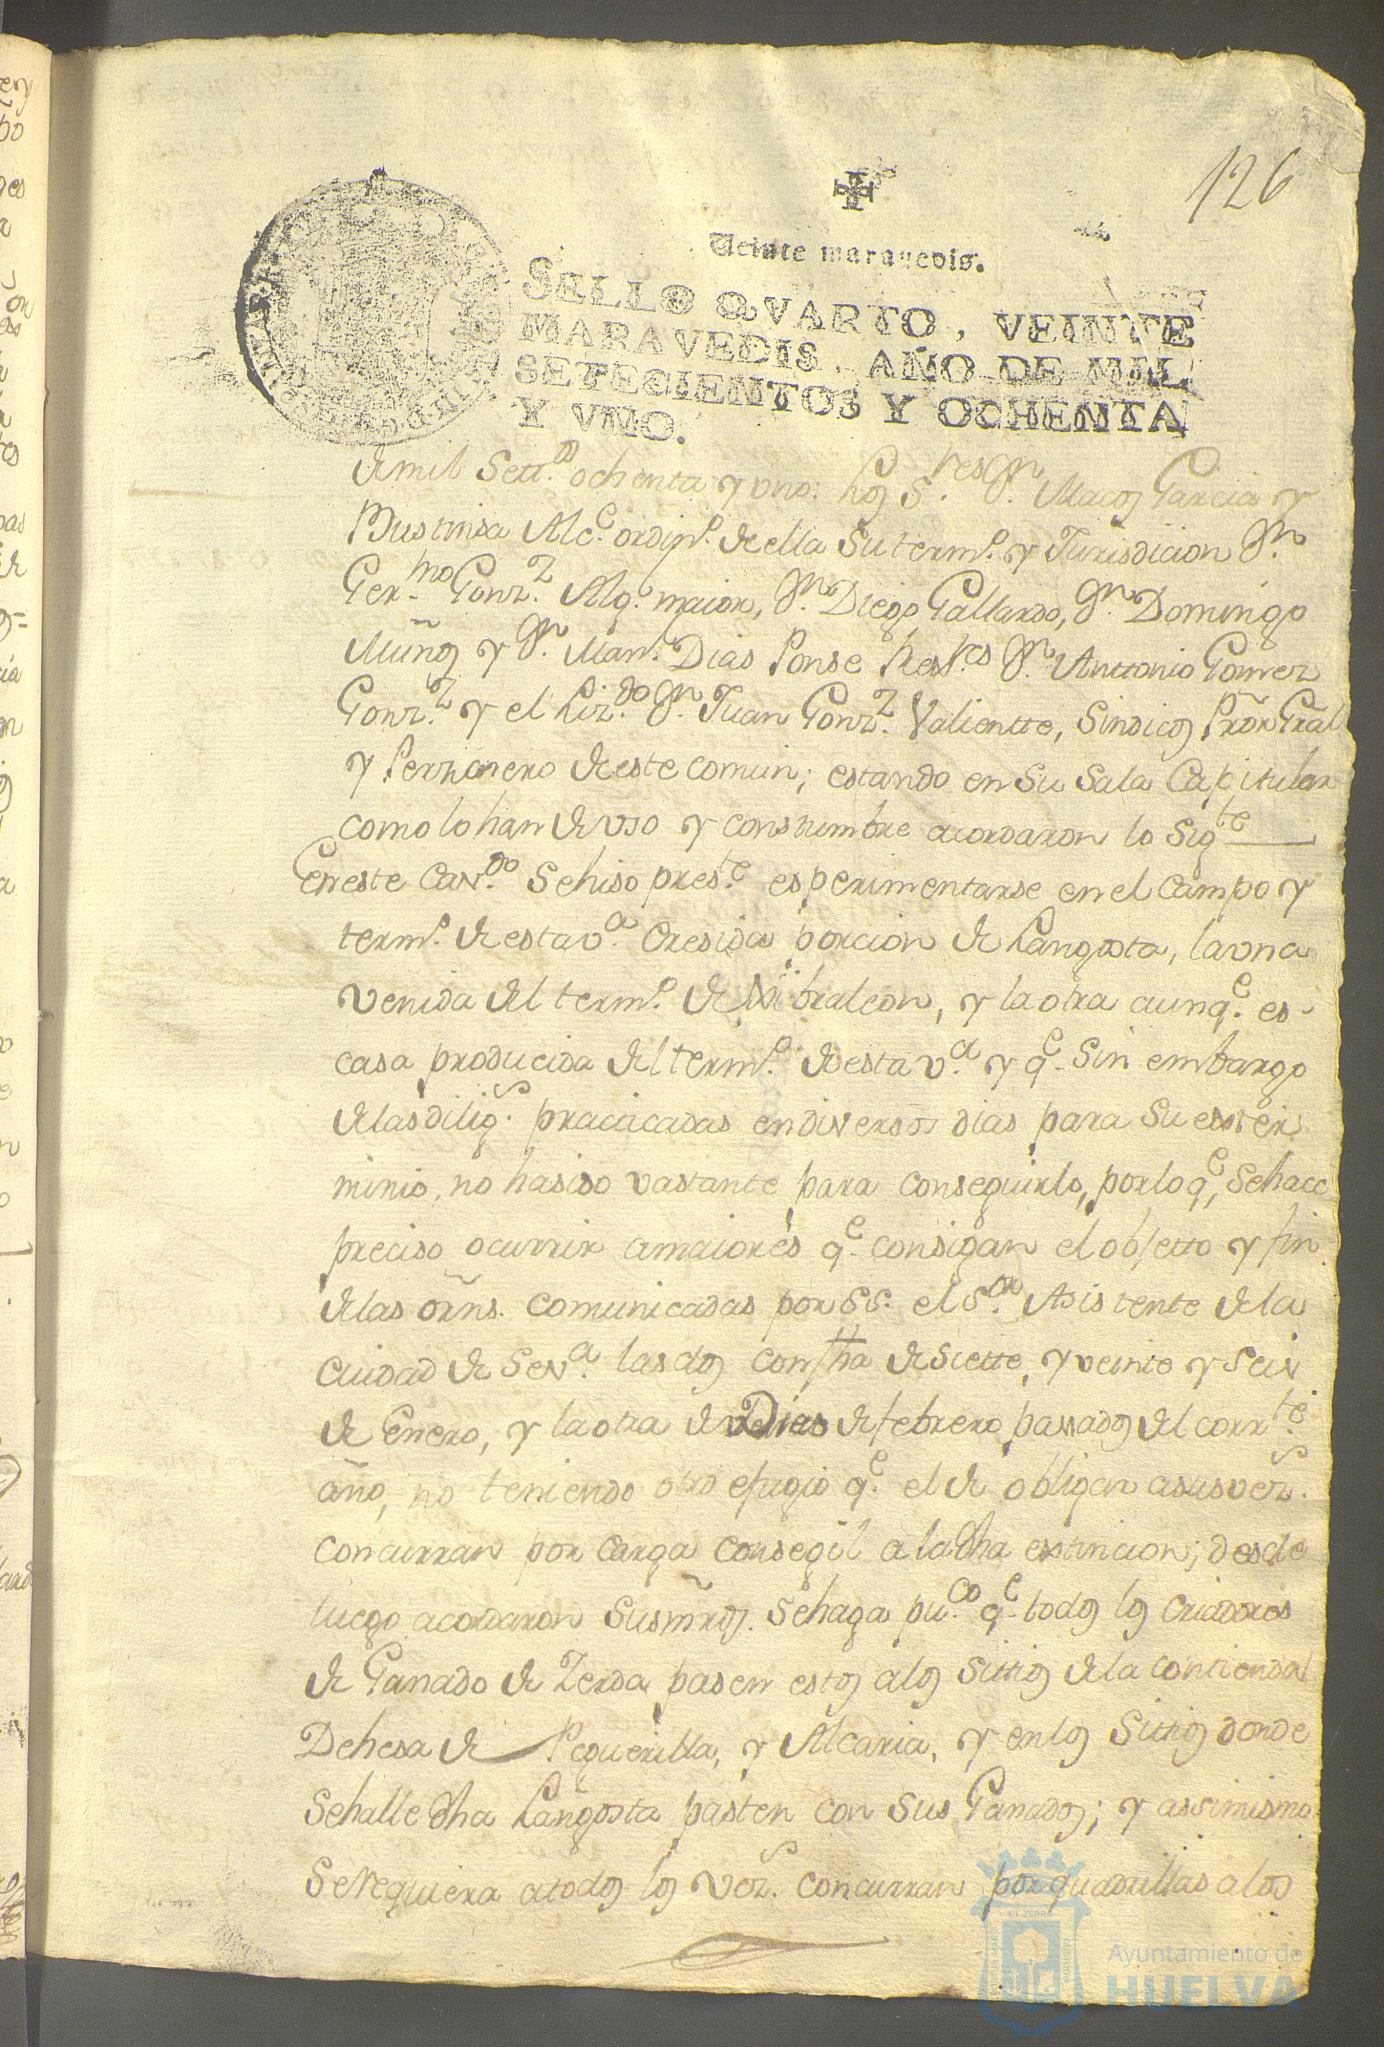 126
Veinte maravedis.
SELLO QVARTO, VEINTE
MARAVEDIS, AÑO DE MIL
SETECIENTOS Y OCHENTA
Y VNO.
de mil Sett.os ochenta y uno: los S.res Dn. Garcia y
Bustinsa Alc.e ordin.o de ella Su term.o y Jurisdicion Dn.
Ger.mo Gonz.z Alg.l maior, Dn. Diego Gallardo, Dn. Domingo
Muñoz y Dn. Man.l Dias Ponse Dn. Anttonio Gomez
Gonz.z y el Liz.do Dn. Juan Gonz.z Valientte, Sindicos Prõr Grãl
y Personero de este comun; estando en Su Sala Capitular
como lo han de uso y constumbre acordaron lo Sig.te
En este Cav.do Sehiso pres.te esperimentarse en el Campo y
term.o de esta v.a Cresida porcion de Langosta, la vna
venida del term.o de Xibraleon, y la otra aunq.e es-
casa producida del term.o de esta v.a y q.e Sin embargo
de las dilig.s practicadas en diversos dias para Su exter-
minio, no ha sido vastante para conseguirlo, por lo q.e Sehace
preciso ocurrir a maiores q.e consigan el objetto y fin
de las orñs. comunicadas por SS. el S.or Asistente de la
Ciudad de Sev.a las dos con fha de Siette, y veinte y Seis
de Enero, y la otra de de febrero passados del corr.te
año, no teniendo otro efugio q.e el de obligar a sus vez.s
concurran por carga consegil a la dha extincion; desde
luego acordaron Sus mr̃ds. Sehaga pu.co q.e todos los Criadores
de Ganado de Zerda pasen estos a los Sittios de la contienda
Dehesa de Peguerilla, y Alcaria, y en los Sittios donde
Sehalle dha Langosta pasten con Sus Ganados; y assimismo
Se requiera a todos los vez.s concurran por quadrillas a los
Ayuntamiento de
HUELVA